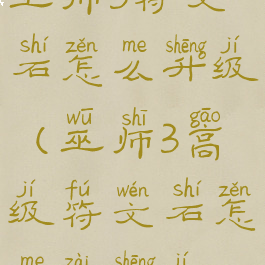 巫师3符文
shí zěn me shēng jí
石怎么升级
wū shī gāo
(巫师3高
jí fú wén shí zěn
级符文石怎
me zài shēng jí